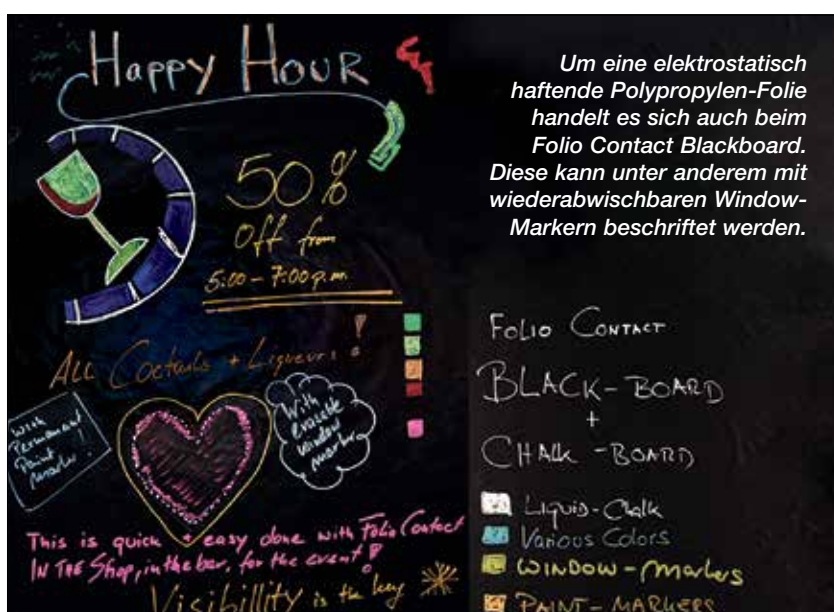 Happy Hour
50%
Off from
5:00 – 7:00 p.m.
ALL Coctails + Liqueurs!
With
Permanent
Paint
Marker!
With
erasable
window
marker
This is quick + easy done with Folio Contact
IN THE Shop, in the bar, for the event!
Visibillity is the key
Um eine elektrostatisch
haftende Polypropylen-Folie
handelt es sich auch beim
Folio Contact Blackboard.
Diese kann unter anderem mit
wiederabwischbaren Window-
Markern beschriftet werden.
Folio Contact
BLACK-BOARD
+
CHALK-BOARD
Liquid-Chalk
Various Colors
WINDOW-Markers
PAINT-MARKERS